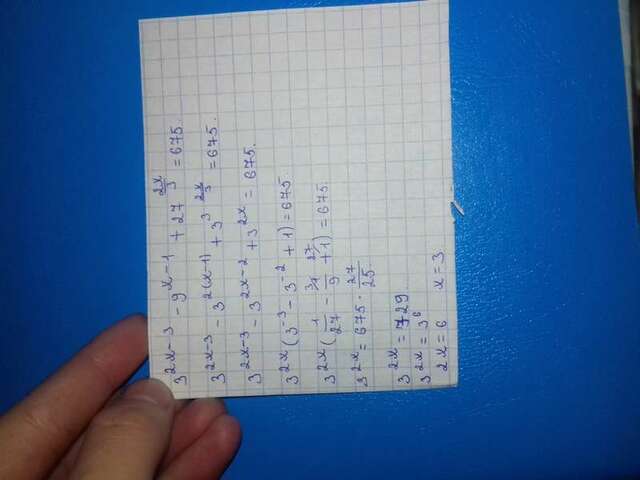 3^{2x-3} - 9^{x-1} + 27^{\frac{2x}{3}} = 675.
3^{2x-3} - 3^{2(x-1)} + 3^{3 \frac{2x}{3}} = 675.
3^{2x-3} - 3^{2x-2} + 3^{2x} = 675.
3^{2x} (3^{-3} - 3^{-2} + 1) = 675
3^{2x} (\frac{1}{27} - \frac{1}{9}^{3/} + 1^{27/}) = 675.
3^{2x} = 675 \cdot \frac{27}{25}
3^{2x} = 729
3^{2x} = 3^6
2x = 6 x = 3